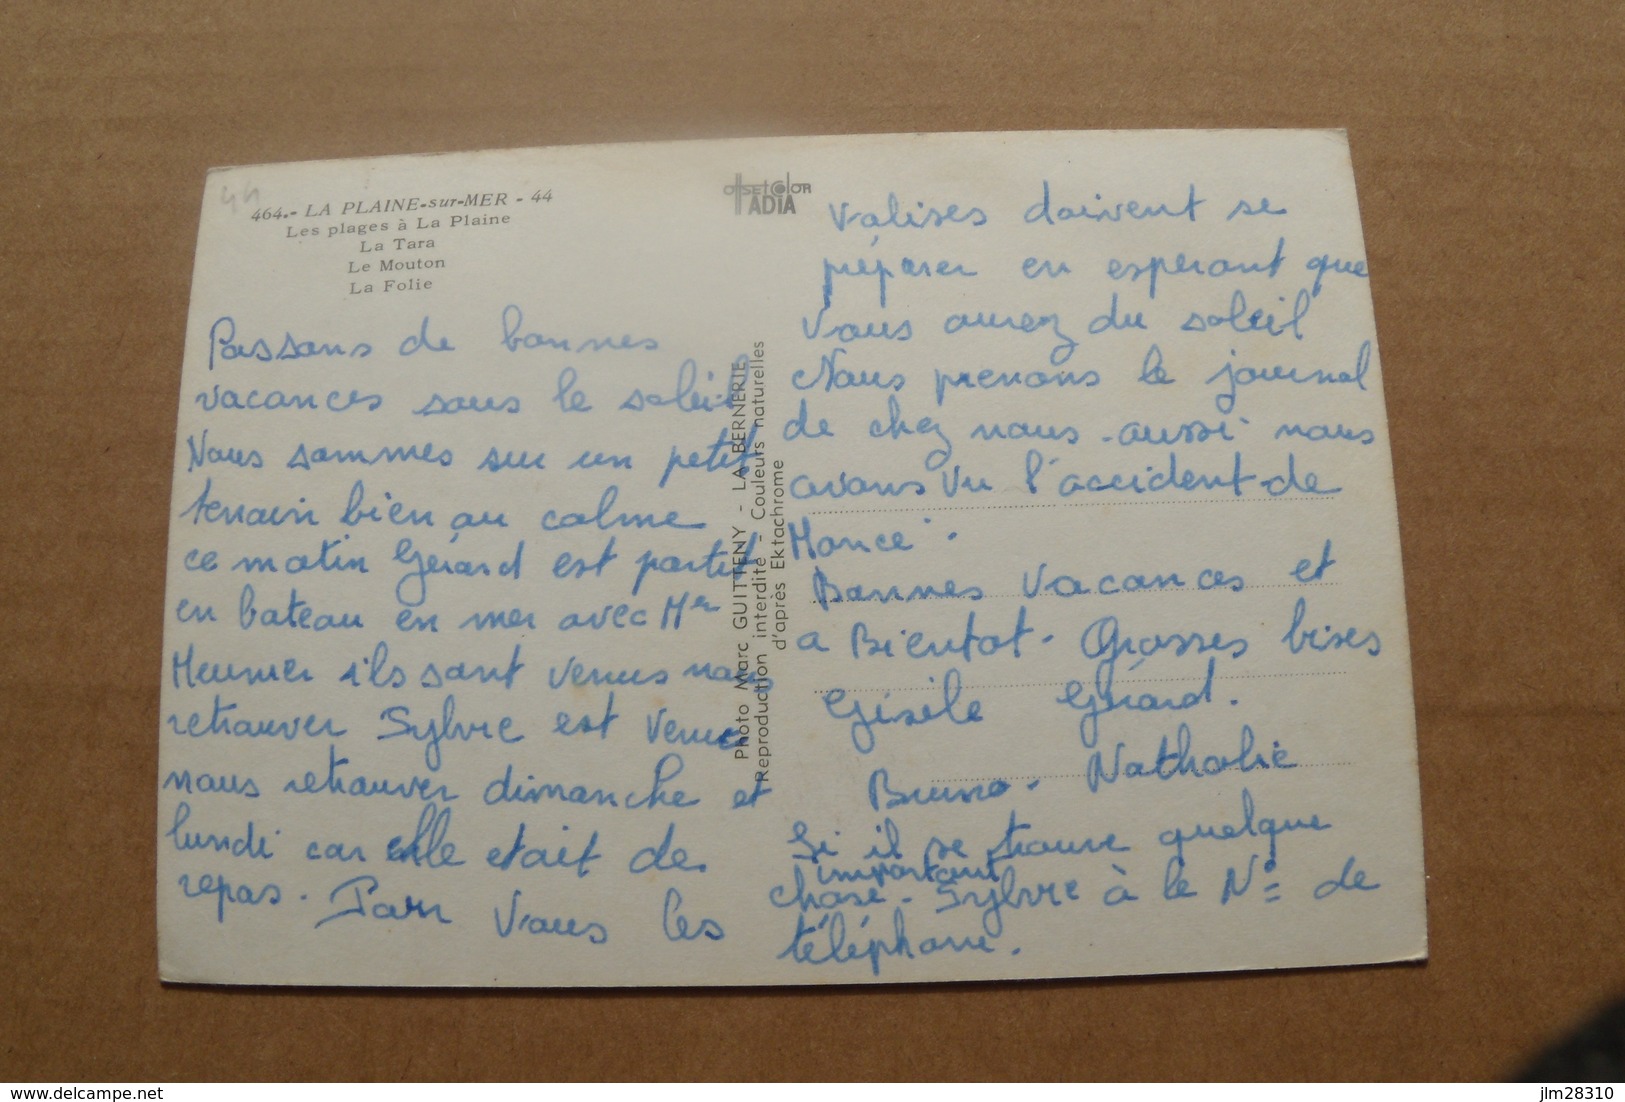 44
464.- LA PLAINE-sur-MER - 44
Les plages à La Plaine
La Tara
Le Mouton
La Folie
Passons de bonnes
vacances sous le soleil
Nous sommes sur un petit
terrain bien au calme
ce matin Gérard est partit
en bateau en mer avec Mr
Meunier ils sont venus nous
retrouver Sylvie est venue
nous retrouver dimanche et
lundi car elle etait de
repas. Pour vous les
offset color
ADIA
Photo Marc GUITTENY - LA BERNERIE
Reproduction interdite - Couleurs naturelles
d'après Ektachrome
valises doivent se
préparer en esperant que
vous aurez du soleil
Nous prenons le journal
de chez nous aussi nous
avons vu l'accident de
Mance.
Bonnes vacances et
a Bientot. Grosses bises
Gisèle Gérard.
Bruno. Nathalie
Si il se trouve quelque
important
chose. Sylvie à le N° de
téléphone.
delcampe.net
jlm28310